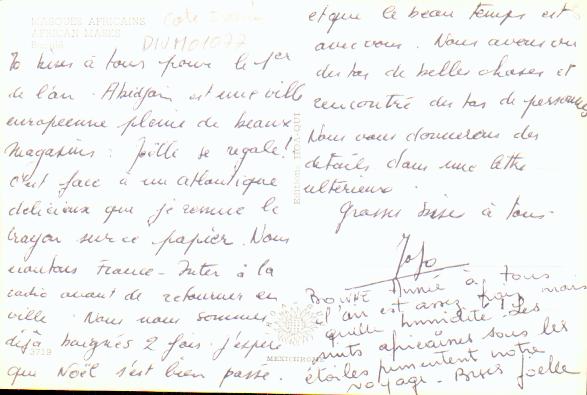 MASQUES AFRICAINS
AFRICAN MASKS
DIVM01077
bises à tous pour le 1er
de l'an. Abidjan est une ville
européenne pleine de beaux
magasins : Joëlle se régale !
c'est face à un atlantique
délicieux que je remue le
crayon sur ce papier. Nous
écoutons France-Inter à la
radio avant de retourner en
ville. Nous nous sommes
déjà baignés 2 fois. j'espère
que Noël s'est bien passé.
3719
MEXICHROME
Editions HOA-QUI
et que le beau temps est
avec vous. Nous avons vu
du tas de belles choses et
rencontré du tas de personnes
Nous vous donnerons des
détails dans une lettre
ultérieure.
Grosses bises à tous.
Jojo
BONNE Année à tous
l'air est assez frais mais
quelle humidité ! Les
nuits africaines sous les
étoiles pimentent notre
voyage. Bises Joëlle